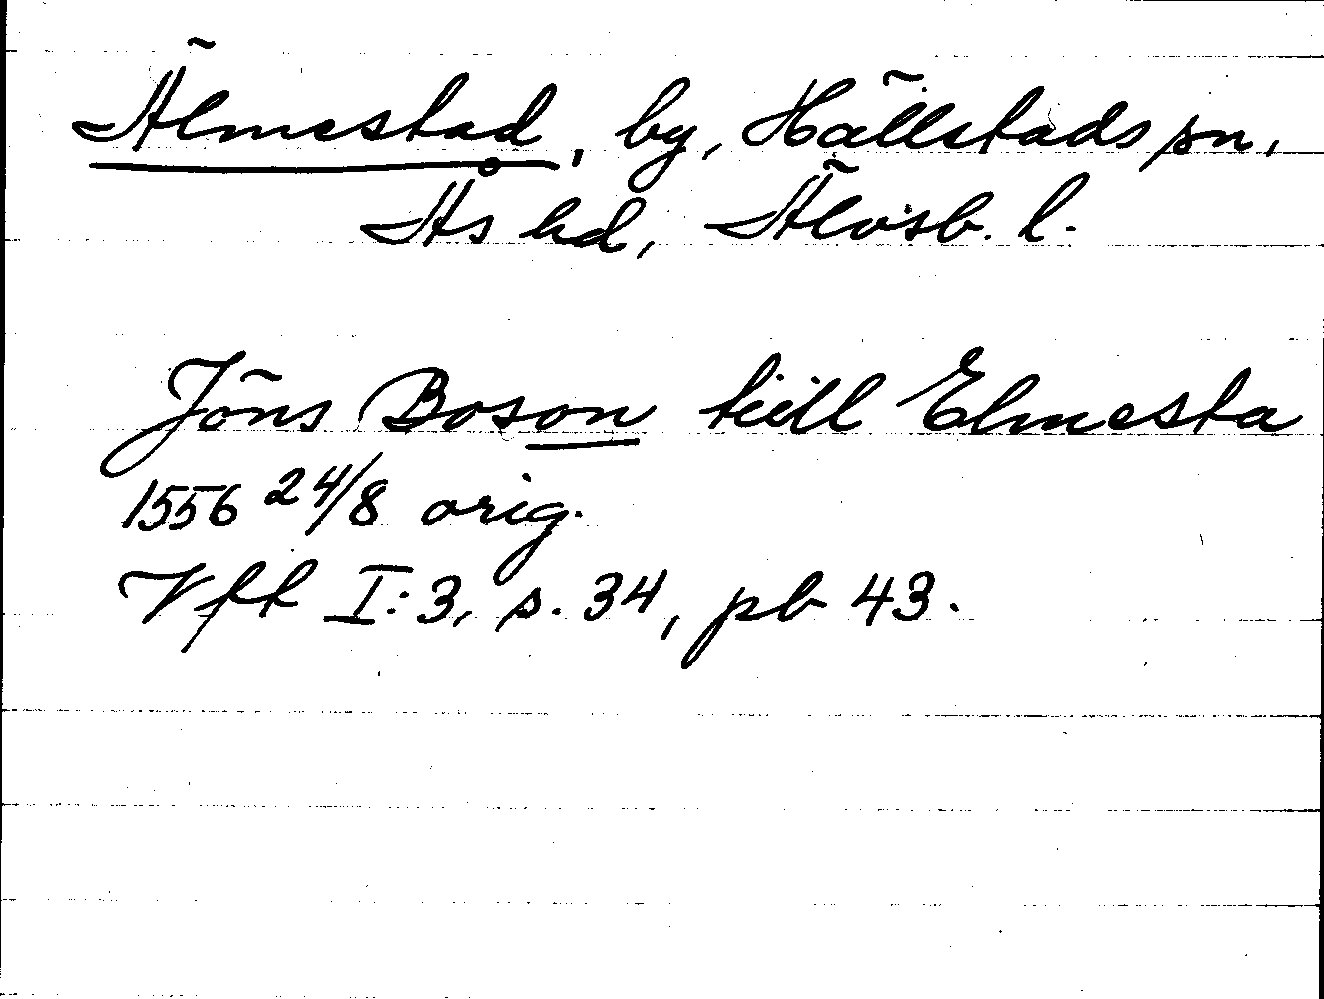 Älmestad, by, Hällstads sn,
Ås hd, Älvsb. l.
Jöns Boson tiill Elmesta
1556 24/8 orig.
Vff I:3, s. 34, pb 43.